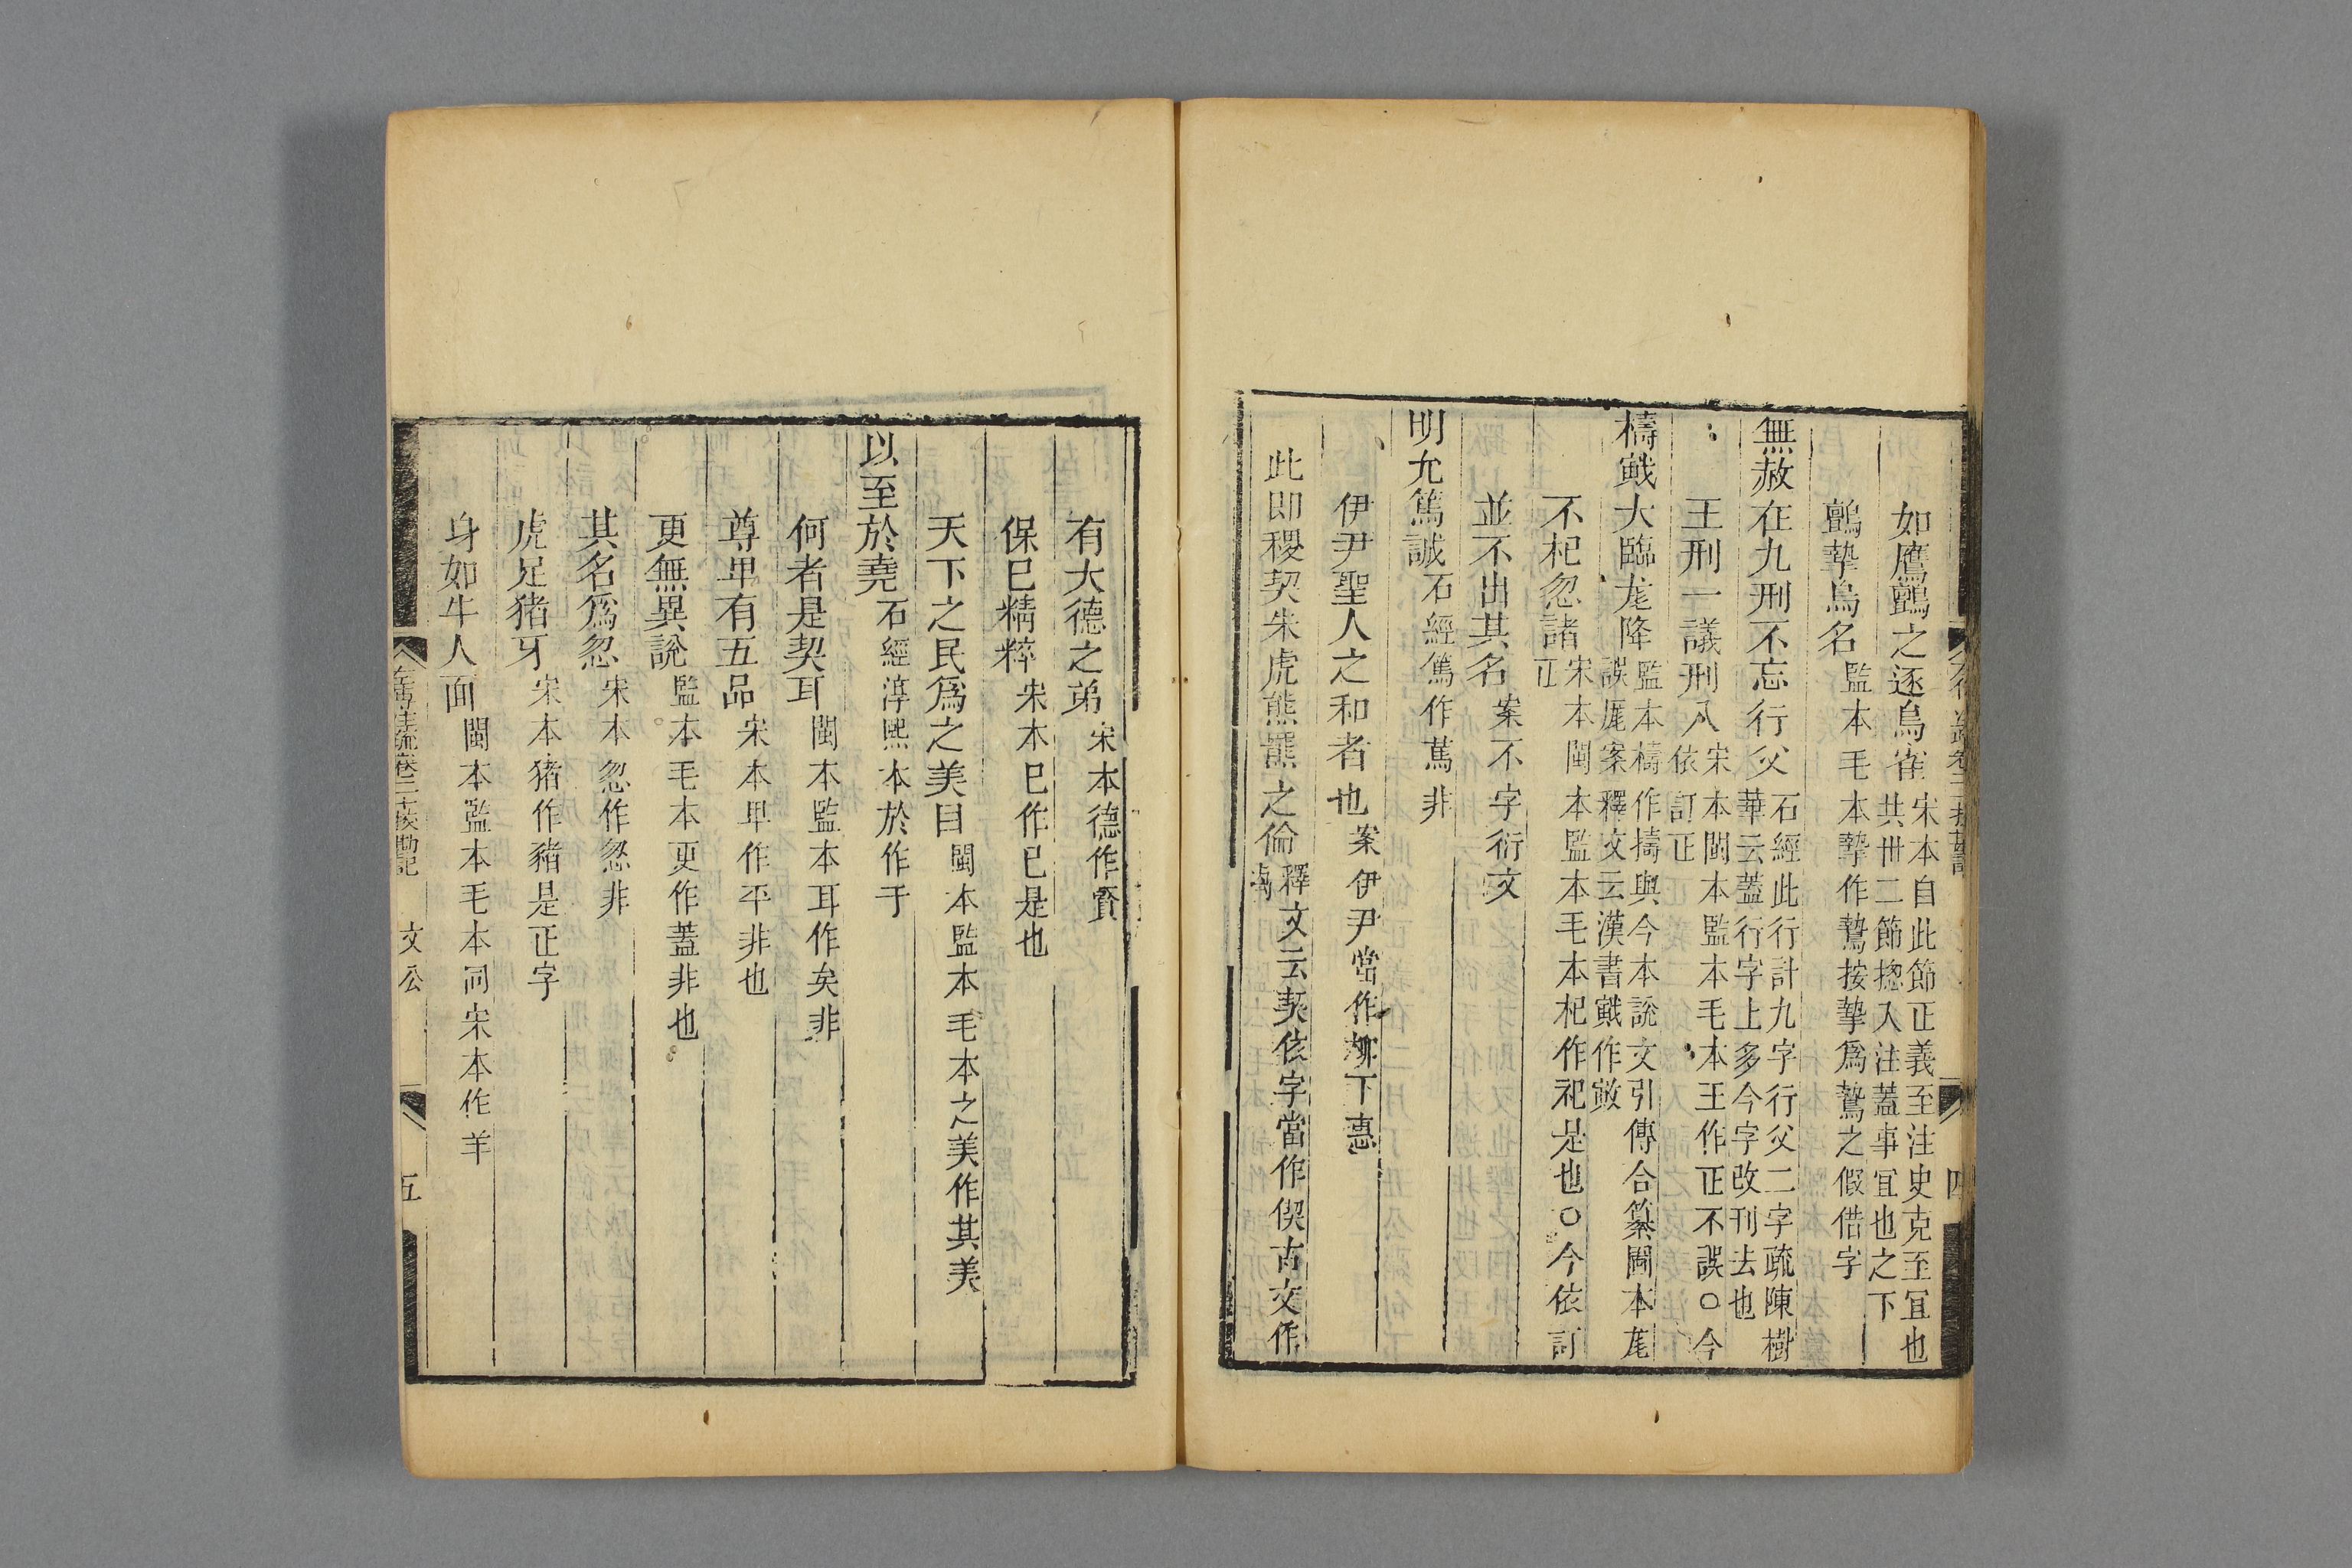 如鷹鸇之逐鳥雀宋本自此節正義至注史克至冝也
共卅二節揔入注蓋事冝也之下
鸇摯鳥名監本毛本摯作鷙按摯爲鷙之假借字
無赦在九刑不忘行父石經此行計九字行父二字疏陳樹
華云蓋行字上多今字改刊去也
王刑一議刑八宋本閩本監本毛本王作正不誤○今
依訂正
檮戭大臨尨降監本檮作擣與今本說文引傳合纂圖本尨
誤厖案釋文云漢書戭作敳
不杞忽諸宋本閩本監本毛本杞作祀是也○今依訂
正
並不出其名案不字衍文
明允篤誠石經篤作䔍非
伊尹聖人之和者也案伊尹當作柳下惠
此即稷契朱虎熊羆之倫釋文云契依字當作偰古文作
四
有大德之弟宋本德作賢
保巳精粹宋本巳作已是也
天下之民爲之美目閩本監本毛本之美作其美
以至於堯石經淳熙本於作于
何者是契耳閩本監本耳作矣非
尊卑有五品宋本卑作平非也
更無異說監本毛本更作蓋非也
其名爲忽宋本忽作怱非
虎足猪牙宋本猪作豬是正字
身如牛人面閩本監本毛本同宋本作羊
左傳注疏卷二十校勘記
文公
五